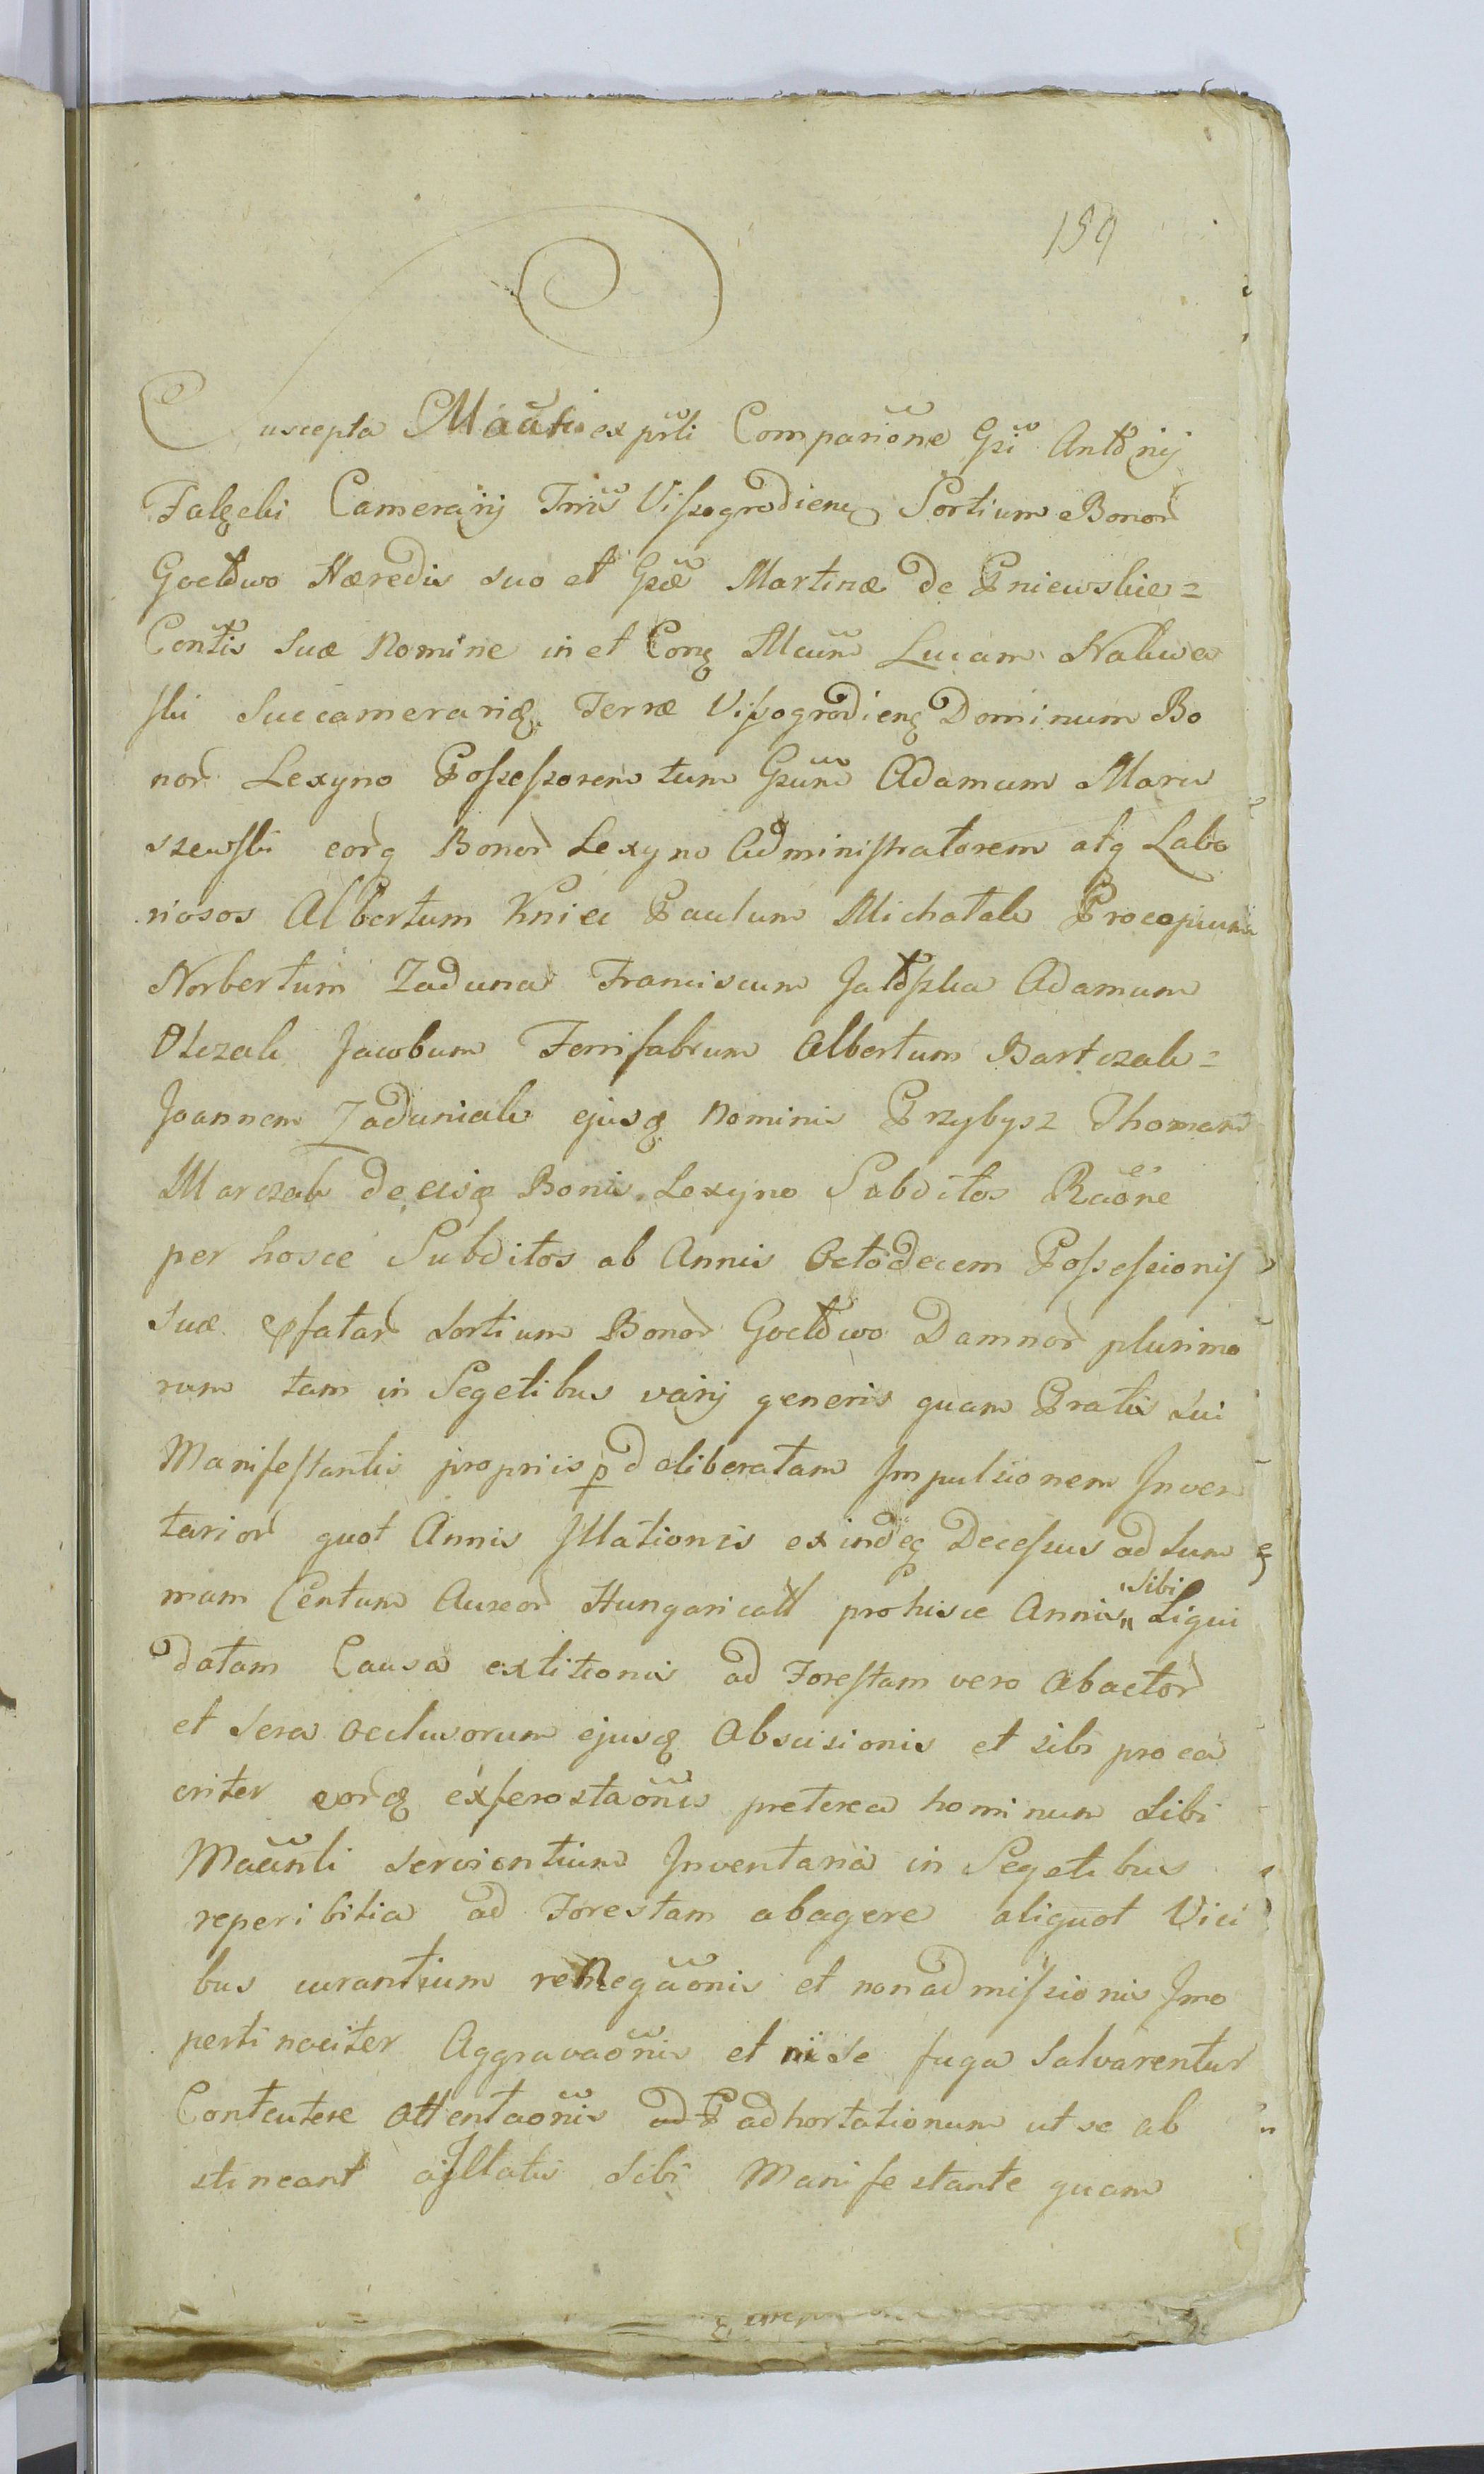 159
Suscepta Maãtio ex prĩti Comparĩone Gsĩ Antonij
Falęcki Camerarij Trrĩs Viszogrodienȩ Sortium Bonor
Goćłowo Hæredis suo et Gsæ Martinæ de Gniewskie=
Contĩs suæ Nomine in et Conȩ Mcũm Lucam Nakwa
ski Succamerariȩ Terræ Viszogrodienȩ Dominum Bo
nor Lexyno Possessorem tum Gsũm Adamum Maru
szewski eorq Bonor Lexyno Administratorem atq Labo
riosos Albertum Kniec Paulum Michatak Procopium
Norbertum Zaduna Franciscum Adamum
Olczak Jacobum Ferrifabrum Albertum Bartczak=
Joannem Zaduniak ejusq Nominis Przybysz Thomam
Marczak de eisq Bonis Lexyno Subditos Raõne
per hosce Subditos ab Annis Octodecem Possessionis
suæ Sortium Bonor Goćłowo Damnor plurimo
rum tam in Segetibus varij generis quam Pratis sui
Manifestantis propriis p deliberatam Impulsionem Inven
tarior quot Annis Illationis exindeq Decessus ad sum
mam Centum Aureor Hungaricall pro hisce Annis "sibi" Liqui
datam Causa extitionis ad Forestam vero Abactor
et Sera occlusorum ejusq Abscisionis et sibi proca
citer eorq exferostaõnis preterea hominum Sibi
Maãnti servientium Inventaria in Segetibus
reperibitia ad Forestam abagere aliquot Vici
bus curantium reNegaõnis et non admissionis Imo
pertinaciter Aggravaõnis et ni se fuga salvarentur
Contentere Attentaõnis adhortationum ut se ab
stineant ab Illatis Sibi Manifestante quam